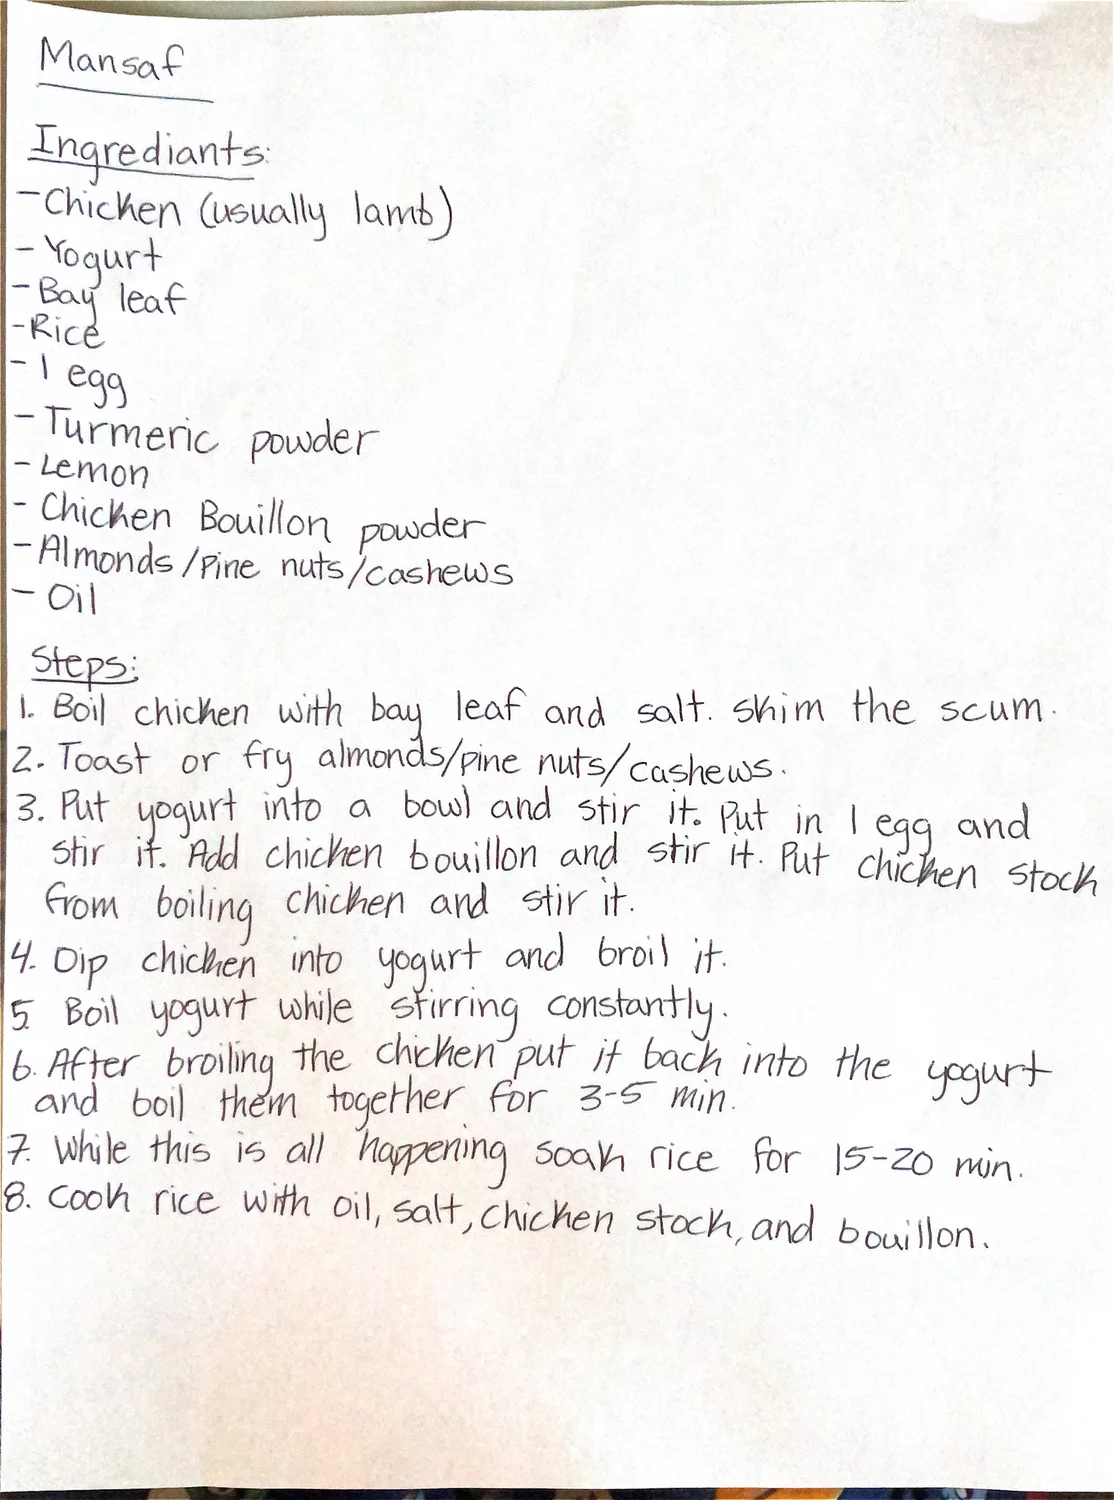 Mansaf
Ingrediants:
- Chicken (usually lamb)
- Yogurt
- Bay leaf
- Rice
- 1 egg
- Turmeric powder
- Lemon
- Chicken Bouillon powder
- Almonds/pine nuts/cashews
- Oil
Steps:
1. Boil chicken with bay leaf and salt. Skim the scum.
2. Toast or fry almonds/pine nuts/cashews.
3. Put yogurt into a bowl and stir it. Put in 1 egg and
stir it. Add chicken bouillon and stir it. Put chicken stock
from boiling chicken and stir it.
4. Dip chicken into yogurt and broil it.
5. Boil yogurt while stirring constantly.
6. After broiling the chicken put it back into the yogurt
and boil them together for 3-5 min.
7. While this is all happening soak rice for 15-20 min.
8. Cook rice with oil, salt, chicken stock, and bouillon.